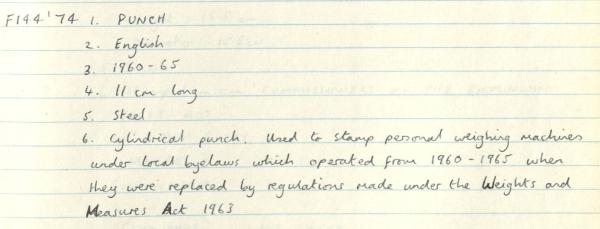 F144'74 1. PUNCH
2. English
3. 1960-65
4. 11 cm long
5. Steel
6. Cylindrical punch. Used to stamp personal weighing machines
under local byelaws which operated from 1960-1965 when
they were replaced by regulations made under the Weights and
Measures Act 1963